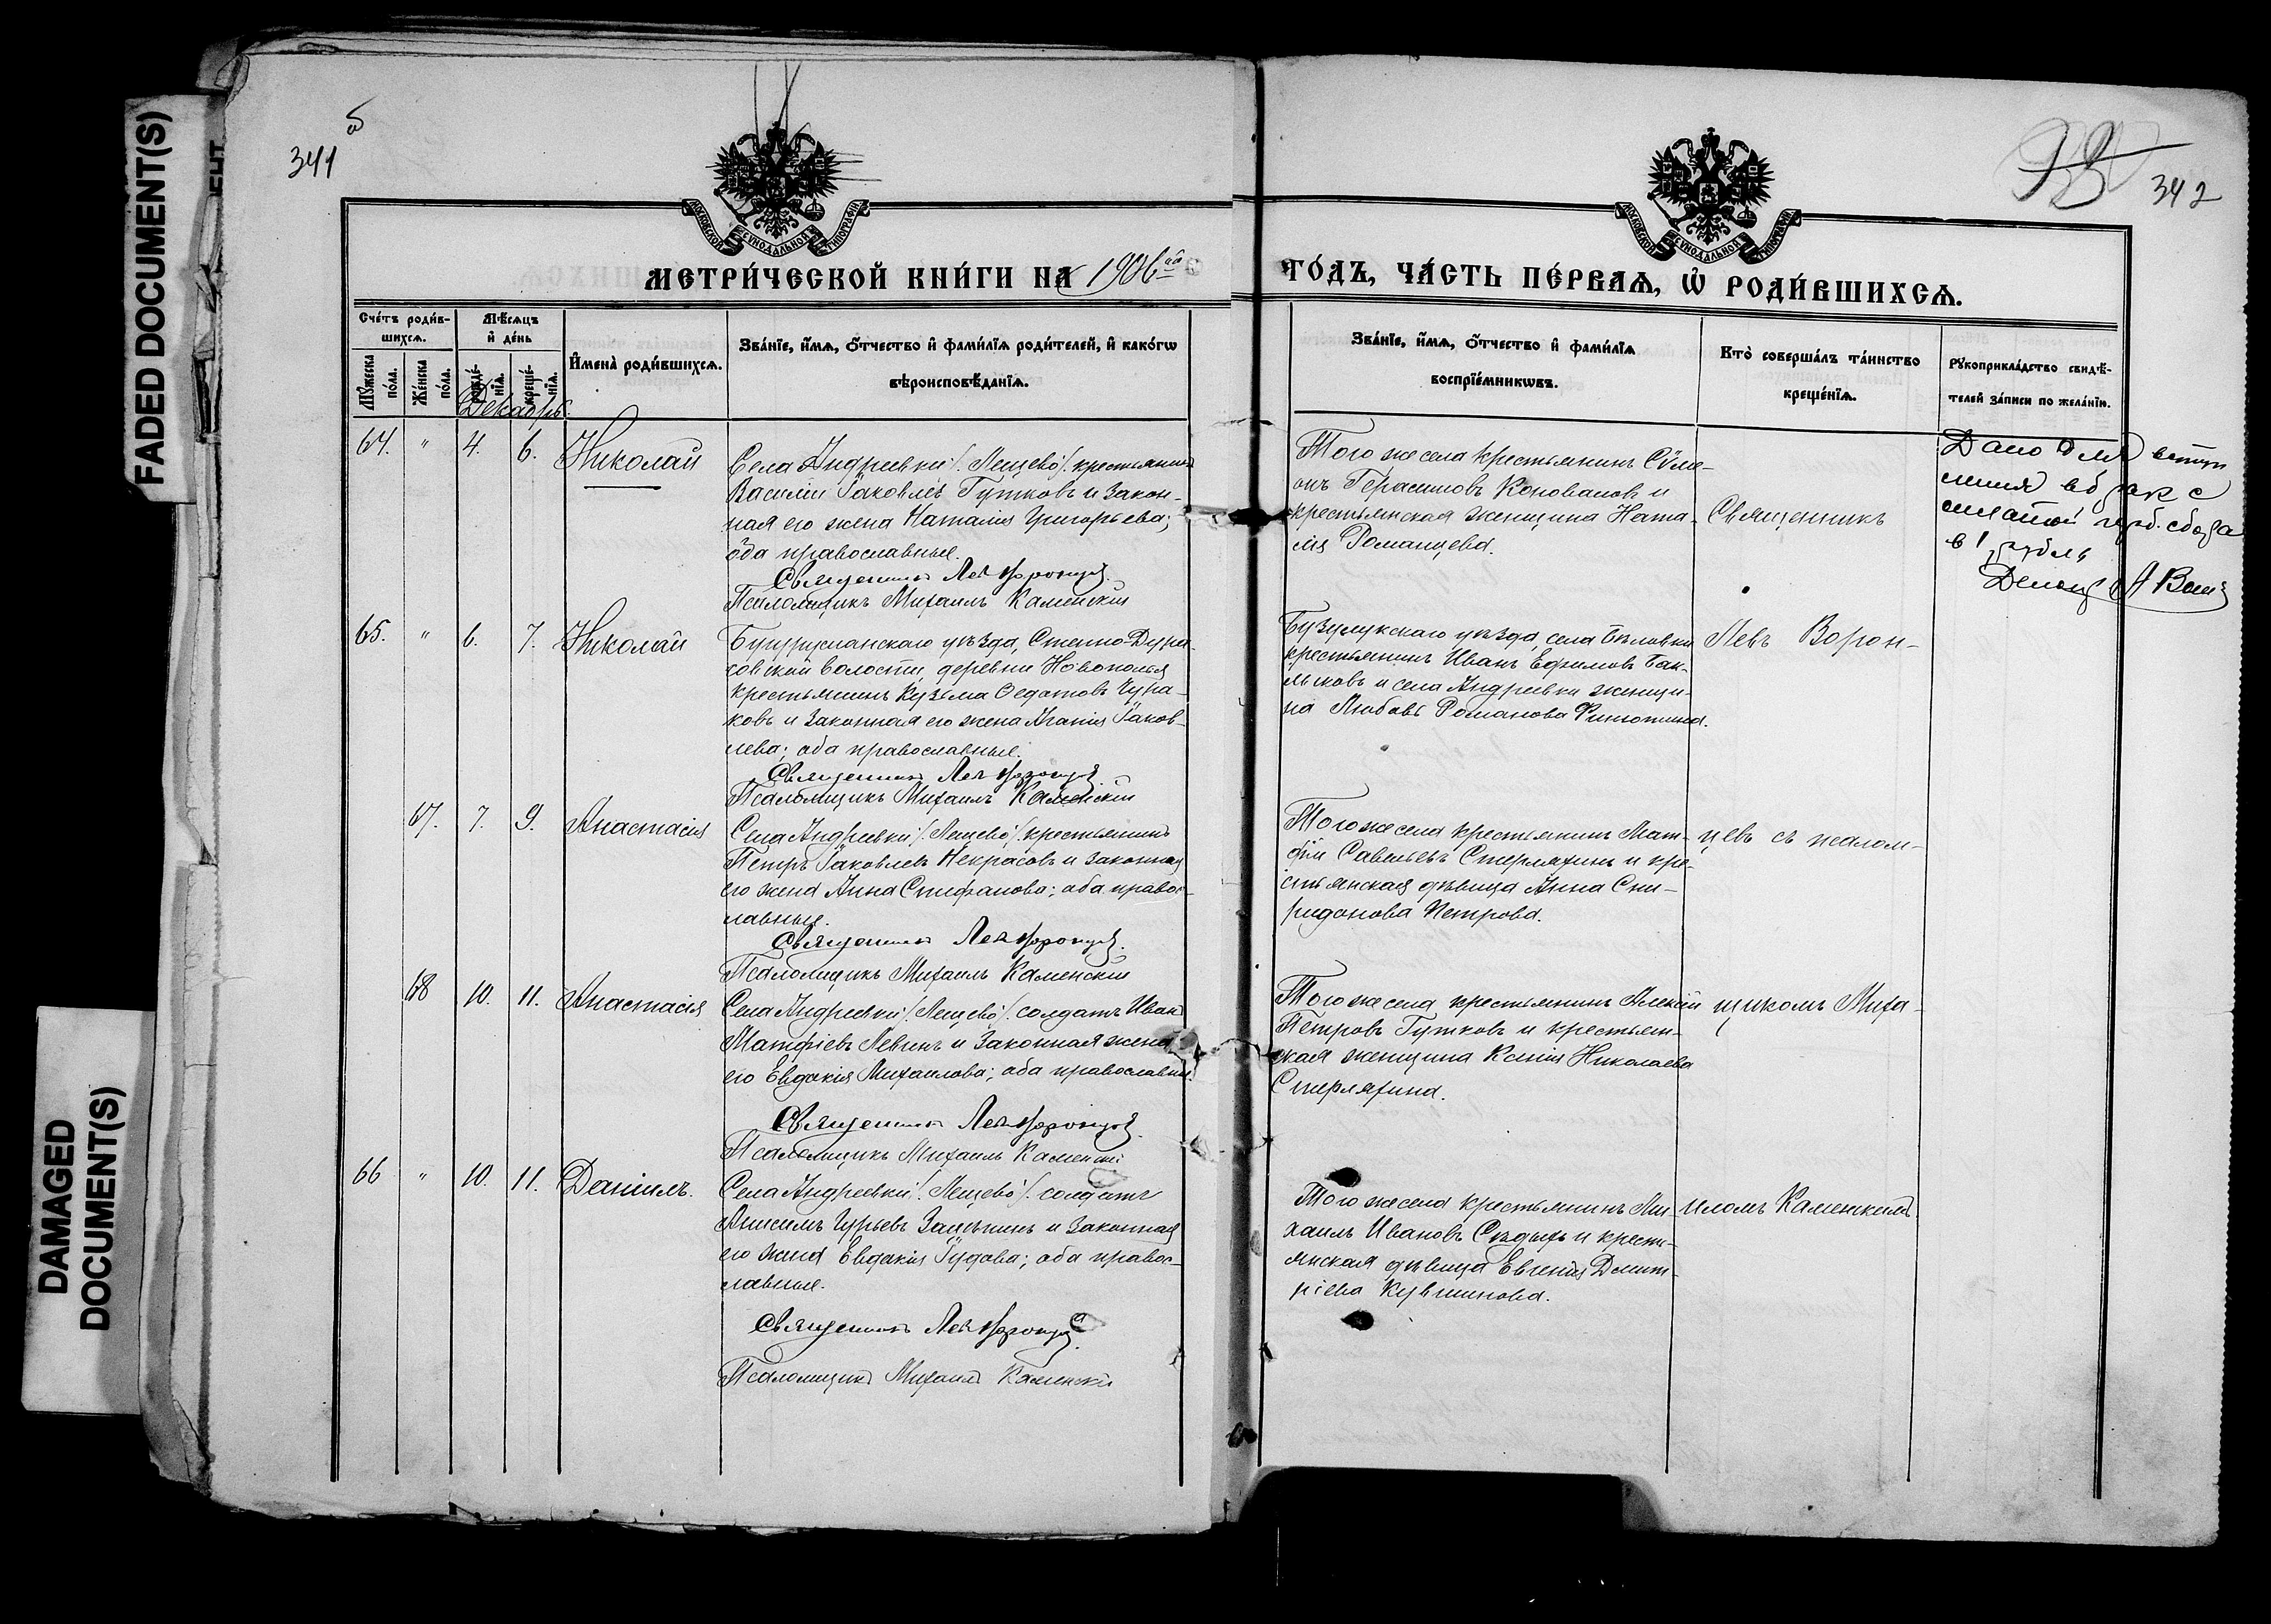 FADED DOCUMENT(S)
DAMAGED
DOCUMENT(S)
341
б
342
МОСКОВСКОЙ СѴНОДАЛЬНОЙ ТИПОГРАФІИ
МОСКОВСКОЙ СѴНОДАЛЬНОЙ ТИПОГРАФІИ
МЕТРИ́ЧЕСКОЙ КНИ́ГИ НА 1906 ГО́ДЪ, ЧА́СТЬ ПЕ́РВАѦ, Ѡ҆ РОДИ́ВШИХСѦ.
Сче́тъ роди́в-
шихсѧ.
Мꙋ́жеска по́ла.
Же́нска по́ла.
Мѣ́сѧцъ
и҆ де́нь
рожде́-
нїѧ.
креще́-
нїѧ.
И҆мена̀ роди́вшихсѧ.
Зва́нїе, и҆́мѧ, ѻ҆́тчество и҆ фами́лїѧ роди́телей, и҆ како́гѡ
вѣроисповѣ́данїѧ.
Зва́нїе, и҆́мѧ, ѻ҆́тчество и҆ фами́лїѧ
воспрїе́мникѡвъ.
Кто̀ соверша́лъ та́инство
креще́нїѧ.
Рꙋкоприкла́дство свидѣ́-
телей за́писи по жела́нїю.
Декабрь
64. " 4. 6. Николай
Села Андреевки /. Лещево /. крестьянинъ
Василій Іаковлевъ Гутковъ и закон-
ная его жена Наталія Григорьева;
оба православные.
Священникъ Левъ Воронцевъ.
Псаломщикъ Михаилъ Каменскій
Того же села крестьянинъ Сѵме-
онъ Герасимовъ Коноваловъ и
крестьянская женщина Ната-
лія Романцева.
Священникъ
Дано для вступ
ления в брак с
оплатой герб. сбора
в 1 рубль
65. " 6. 7. Николай
Бугурусланскаго уѣзда, Степно-Дура-
совской волости, деревни Новополья
крестьянинъ Кузьма Ѳедотовъ Чура-
ковъ и законная его жена Агапія Іаков-
лева; оба православные.
Священникъ Левъ Воронцевъ.
Псаломщикъ Михаилъ Каменскій
Бузулукскаго уѣзда, села Бѣловки
крестьянинъ Иванъ Ефимовъ Бак-
лыковъ и села Андреевки женщи-
на Любовь Романова
Левъ Ворон-
67. 7. 9. Анастасія
Села Андреевки /. Лещево /. крестьянинъ
Петръ Іаковлевъ Некрасовъ и законная
его жена Анна Стефанова; оба правос-
лавные.
Священникъ Левъ Воронцевъ.
Псаломщикъ Михаилъ Каменскій
Того же села крестьянинъ Мат-
ѳій Савельевъ Стерляхинъ и кре-
стьянская дѣвица Анна Спи-
ридонова Петрова.
цевъ съ псалом-
68 10. 11. Анастасія
Села Андреевки /. Лещево /. солдатъ Иванъ
Матѳіевъ Левинъ и законная жена
его Евдокія Михаилова; оба православные.
Священникъ Левъ Воронцевъ.
Псаломщикъ Михаилъ Каменскій
Того же села крестьянинъ Алексій
Петровъ Гутковъ и крестьян-
ская женщина Ксенія Николаева
Стерляхина.
щикомъ Миха-
66 " 10. 11. Даніилъ.
Села Андреевки /. Лещево /. солдатъ
Анисимъ Гурьевъ и законная
его жена Евдокія Іудова; оба правос-
лавные.
Священникъ Левъ Воронцевъ.
Псаломщикъ Михаилъ Каменскій
Того же села крестьянинъ Ми-
хаилъ Ивановъ Сѣдыхъ и кресть-
янская дѣвица Евгенія Димит-
ріева Кувшинова.
иломъ Каменскимъ